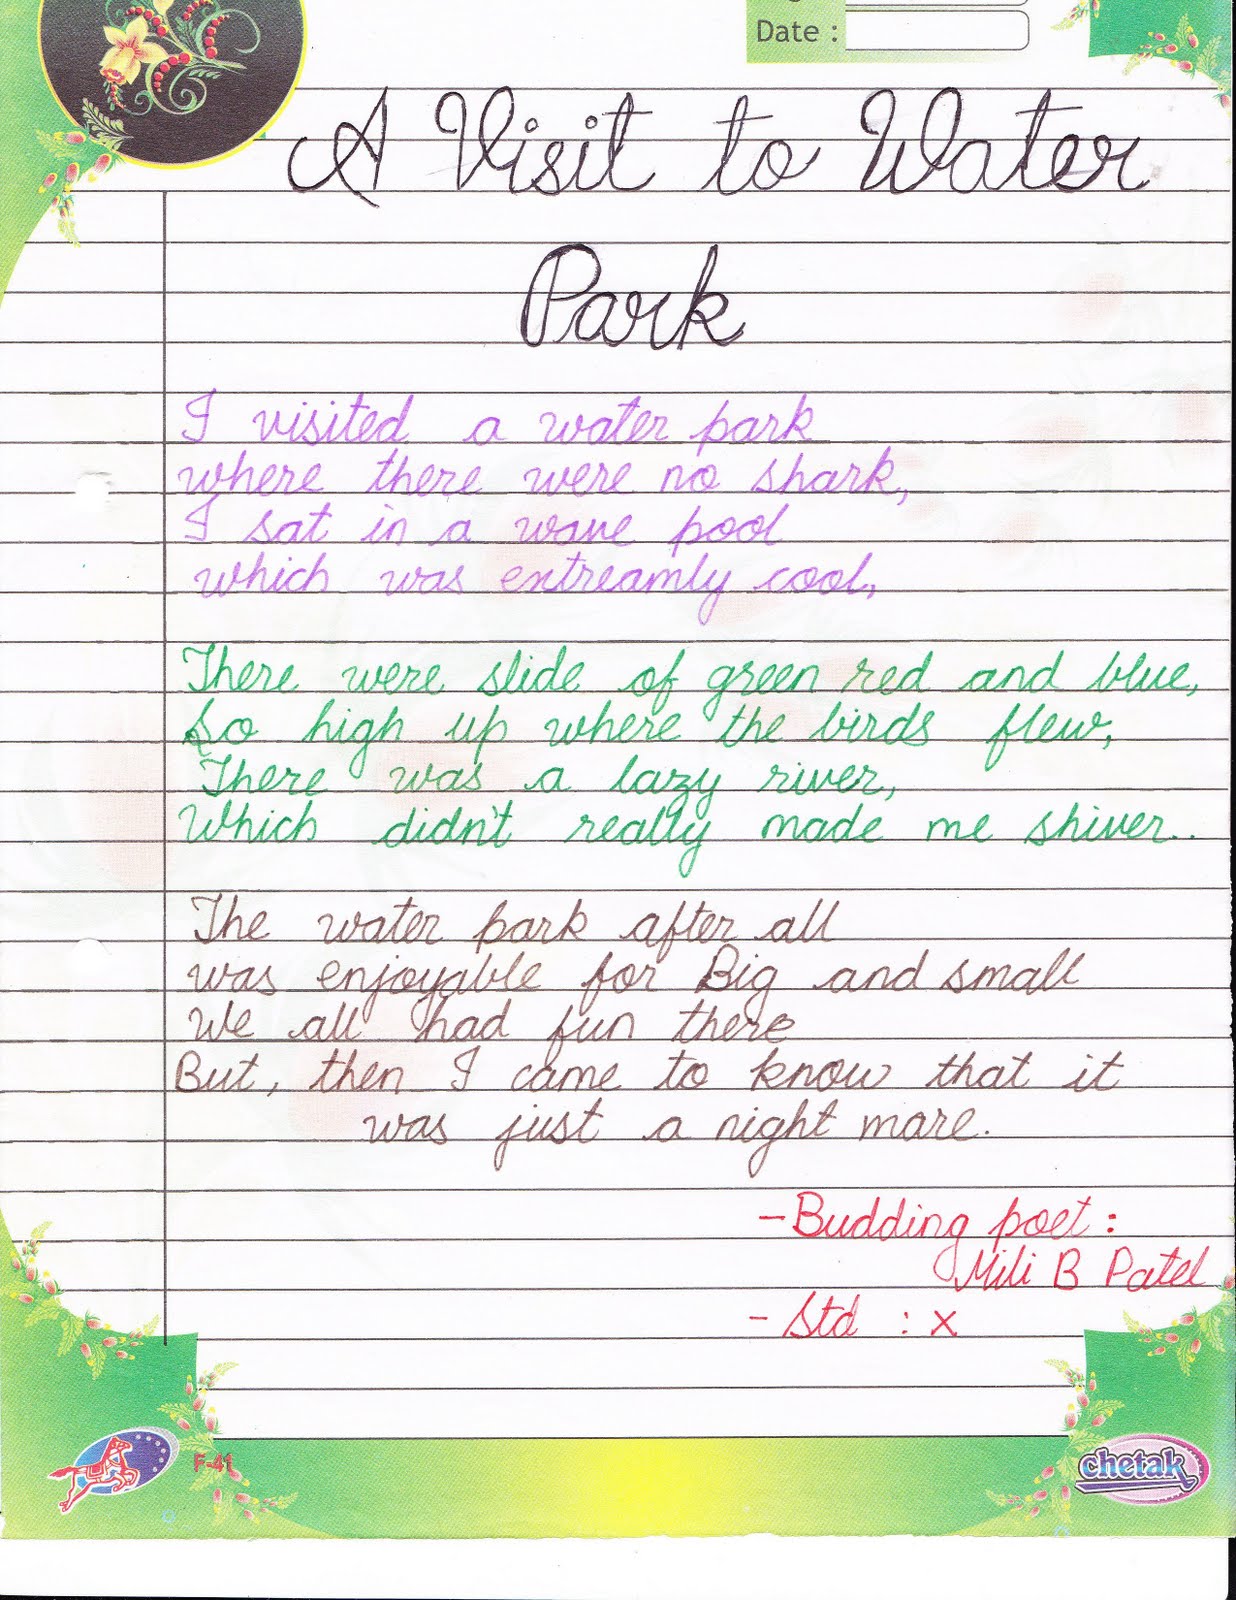 Date :
A Visit to Water
Park
I visited a water park
where there were no shark,
I sat in a wave pool
which was extreamly cool,
There were slide of green red and blue,
So high up where the birds flew,
There was a lazy river,
Which didn't really made me shiver..
The water park after all
was enjoyable for Big and small
We all had fun there
But, then I came to know that it
was just a night mare.
- Budding poet :
Mili B Patel
- Std : X
F-41
chetak